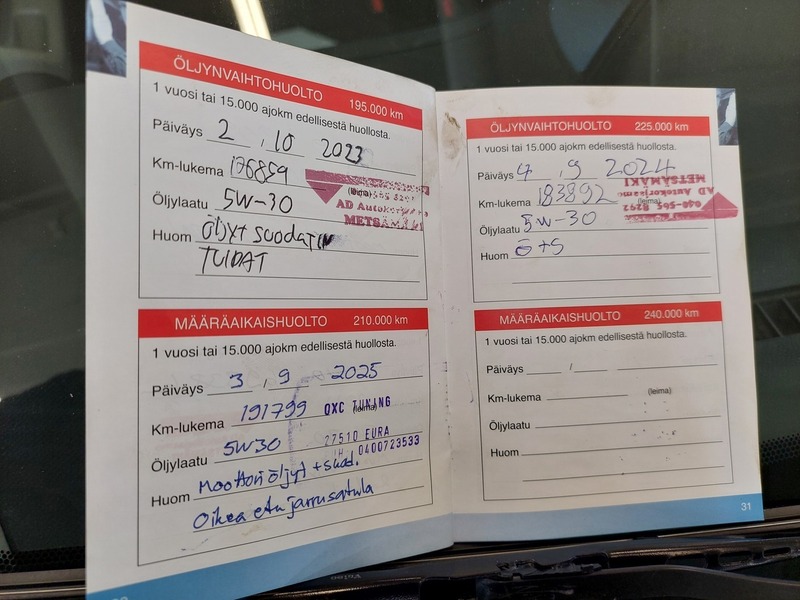 ÖLJYNVAIHTOHUOLTO 195.000 km
1 vuosi tai 15.000 ajokm edellisestä huollosta.
Päiväys 2 . 10 2023
Km-lukema 176859
(leima)
Öljylaatu 5W-30
AD Autokorjaamo
METSÄMÄKI
Huom Öljyt suodatin
TULPAT
MÄÄRÄAIKAISHUOLTO 210.000 km
1 vuosi tai 15.000 ajokm edellisestä huollosta.
Päiväys 3 . 9 2025
Km-lukema 191799
QXC TUNING
(leima)
Öljylaatu 5W30
27510 EURA
0400723533
Huom Moottori öljyt + suod.
Oikea etu jarrusatula
ÖLJYNVAIHTOHUOLTO 225.000 km
1 vuosi tai 15.000 ajokm edellisestä huollosta.
Päiväys 4 . 9 2024
Km-lukema 183892
(leima)
METSÄMÄKI
AD Autokorjaamo
Öljylaatu 5W-30
Huom Ö+S
MÄÄRÄAIKAISHUOLTO 240.000 km
1 vuosi tai 15.000 ajokm edellisestä huollosta.
Päiväys / 
Km-lukema (leima)
Öljylaatu
Huom
31
Valeo